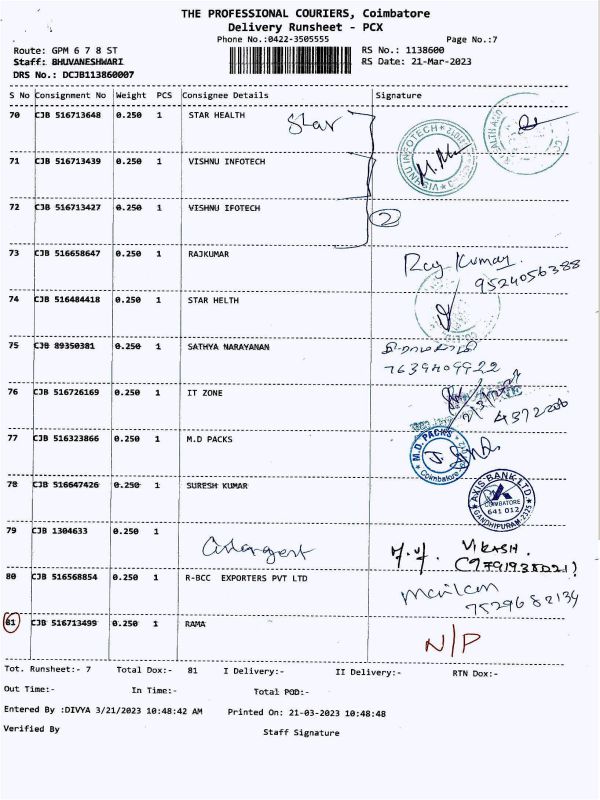 THE PROFESSIONAL COURIERS, Coimbatore
Delivery Runsheet - PCX
Phone No.:0422-3505555
Page No.:7
Route: GPM 6 7 8 ST
RS No.: 1138600
Staff: BHUVANESHWARI
RS Date: 21-Mar-2023
DRS No.: DCJB113860007
S No Consignment No Weight PCS Consignee Details Signature
70 CJB 516713648 0.250 1 STAR HEALTH
Star
71 CJB 516713439 0.250 1 VISHNU INFOTECH
VISHNU INFOTECH
72 CJB 516713427 0.250 1 VISHNU IFOTECH
2
73 CJB 516658647 0.250 1 RAJKUMAR
Raj Kumar.
9524056388
74 CJB 516484418 0.250 1 STAR HELTH
75 CJB 89350381 0.250 1 SATHYA NARAYANAN
7639409922
76 CJB 516726169 0.250 1 IT ZONE
4372206
77 CJB 516323866 0.250 1 M.D PACKS
M.D. PACKS
Coimbatore
78 CJB 516647426 0.250 1 SURESH KUMAR
AXIS BANK LTD
COIMBATORE
641 012
GANDHIPURAM-2325
79 CJB 1304633 0.250 1
VIKASH.
80 CJB 516568854 0.250 1 R-BCC EXPORTERS PVT LTD
7529682134
81 CJB 516713499 0.250 1 RAMA
N/P
Tot. Runsheet:- 7 Total Dox:- 81 I Delivery:- II Delivery:- RTN Dox:-
Out Time:- In Time:- Total POD:-
Entered By :DIVYA 3/21/2023 10:48:42 AM Printed On: 21-03-2023 10:48:48
Verified By Staff Signature